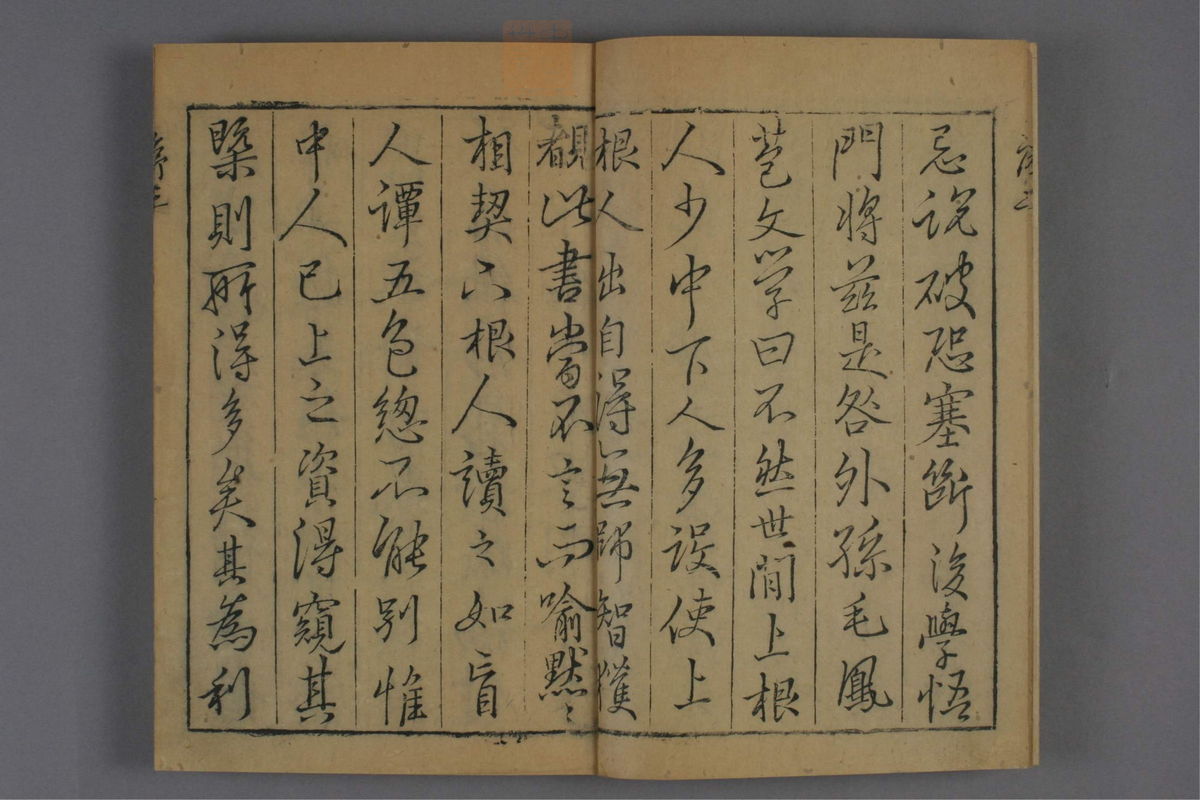 忌説破恐塞斷後學悟
門將茲是咎外孫毛鳳
苞文學曰不然世間上根
人少中下人多設使上
根人出自得無師智獲
覩此書當不言而喻默〻
相契下根人讀之如盲
人譚五色總不能別惟
中人已上之資得窺其
槩則所得多矣其為利
序三